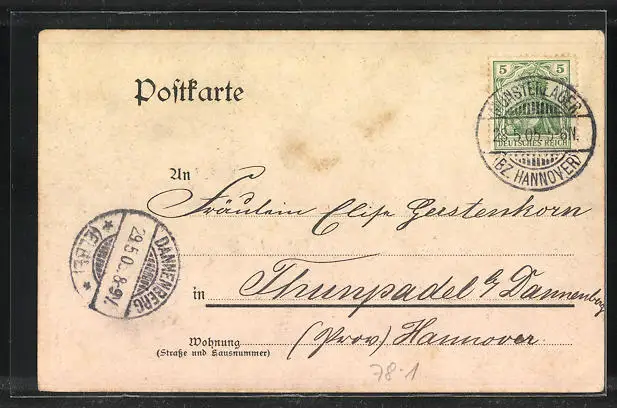 5 5
DEUTSCHES REICH
MUNSTERLAGER
28.5.05 5-6N.
(BZ. HANNOVER)
Postkarte
An
Fräulein Elise Gerstenkorn
in Thunpadel b/ Dannenberg
(Prov) Hannover
Wohnung
(Straße und Hausnummer)
DANNENBERG
29.5.0 8-9V.
* (ELBE) *
78.1